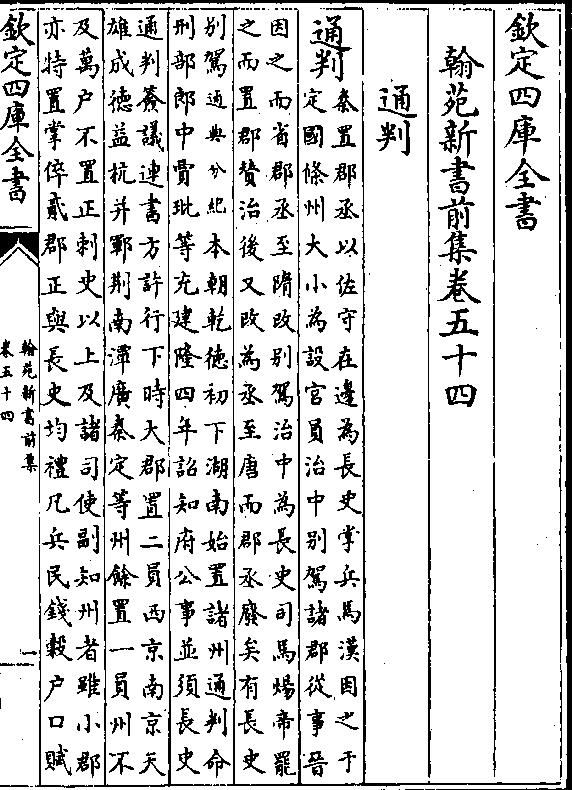 欽定四庫全書
翰苑新書前集卷五十四
通判
通判
秦置郡丞以佐守在邊為長史掌兵馬漢因之于
定國條州大小為設官員治中别駕諸郡從事晉
因之而省郡丞至隋改别駕治中為長史司馬煬帝罷
之而置郡贊治後又改為丞至唐而郡丞廢矣有長史
别駕通典分紀本朝乾徳初下湖南始置諸州通判命
刑部郎中賈玭等充建隆四年詔知府公事並須長史
通判簽議連書方許行下時大郡置二員西京南京天
雄成德益杭并鄆荆南潭廣秦定等州餘置一員州不
及萬户不置正刺史以上及諸司使副知州者雖小郡
亦特置掌倅貳郡正與長史均禮凡兵民錢穀户口賦
欽定四庫全書
翰苑新書前集
卷五十四
一